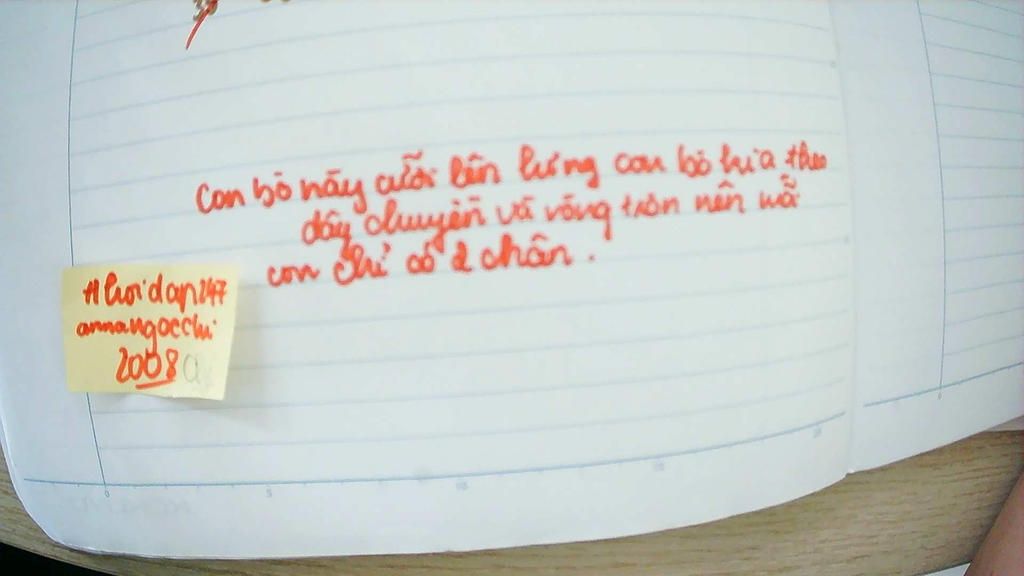 Con bò này cưỡi lên lưng con bò kia theo
dây chuyền và vòng tròn nên mỗi
con chỉ có 2 chân.
#hoidap247
annangocchi
2008